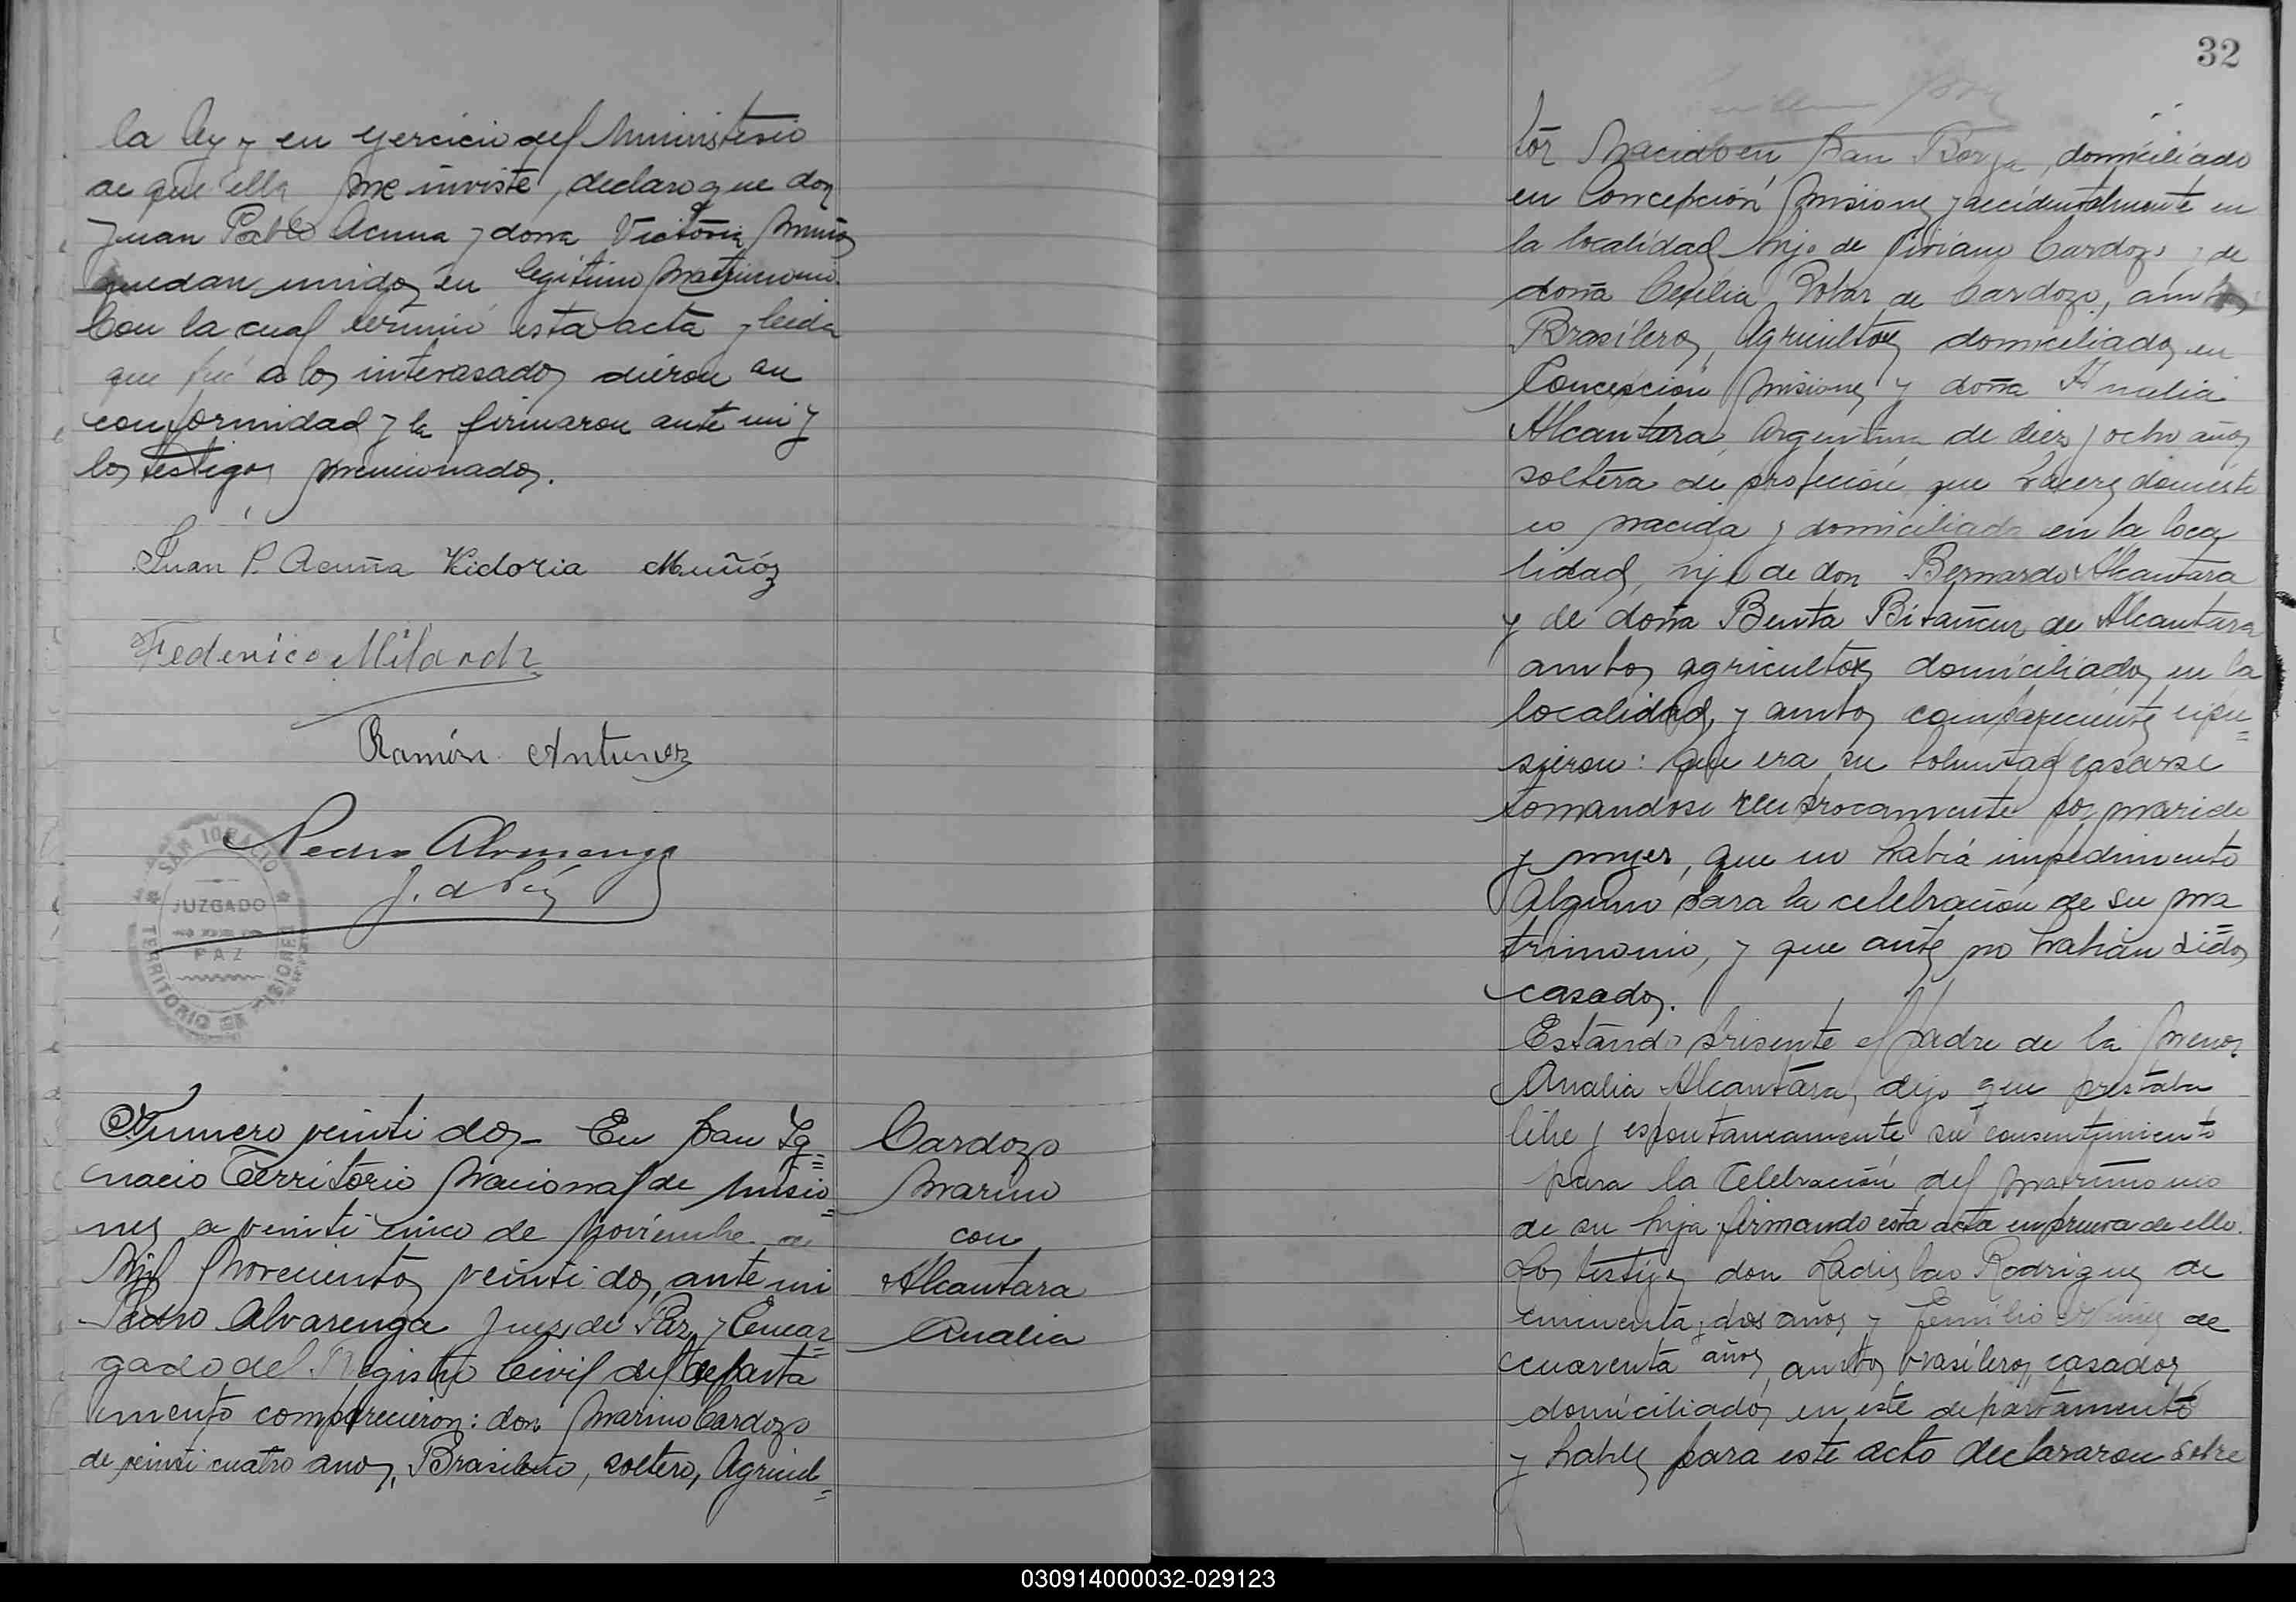 la ley y en ejercicio del Ministerio
de que ella me inviste, declaro que don
Juan Pablo Acuna y dona Victoria Muñoz
quedan unidos en legitimo matrimonio.
Con la cual terminó esta acta y leida
que fué a los interasados dieron su
conformidad y la firmaron ante mi y
los testigos mencionados.
Juan P. Acuña Victoria Muñóz
Federico
Ramón Antunez
Pedro Alvarenga
J. de Paz
SAN IGNACIO
JUZGADO
PAZ
TERRITORIO DE MISIONES
Numero veinti dos - En San Ig=
nacio Territorio Nacional de Misio=
nes a veinti cinco de Noviembre de
Mil Novecientos veinti dos, ante mi
Pedro Alvarenga Juez de Paz y Encar=
gado del Registro Civil del departa
mento comparecieron: don Marino Cardozo
de veinti cuatro anos, Brasileño, soltero, Agricul=
Cardozo
Marino
con
Alcantara
Analia
32
tor Nacido en San Borja, domiciliado
en Concepción Misiones y accidentalmente en
la localidad hijo de Cardozo y de
doña Cecilia de Cardozo, ambos
Brasileros, Agricultores domiciliados en
Concepción Misiones y doña Analia
Alcantara, Argentina de diez y ocho años
soltera de profeción que haceres domesti
co nacida y domiciliada en la loca
lidad, hija de don Bernardo Alcantara
y de doña Benta Bitancur de Alcantara
ambos agricultores domiciliados en la
localidad, y ambos comparecientes espu=
sieron: que era su voluntad casarse
tomandose reciprocamente por marido
y mujer, que no habia impedimento
Alguno para la celebración de su ma
trimonio, y que antes no habian sidos
casados.
Estando presente el padre de la menor
Analia Alcantara, dijo que prestaba
libre y espontaneamente su consentimiento
para la Celebración del matrimonio
de su hija firmando esta acta en prueva de ello.
Los testigos don Ladislao Rodriguez de
cincuenta y dos anos y Emilio de
cuarenta años, ambos brasileros, casados
domiciliados en este departamento
y habiles para este acto declararon sobre
030914000032-029123